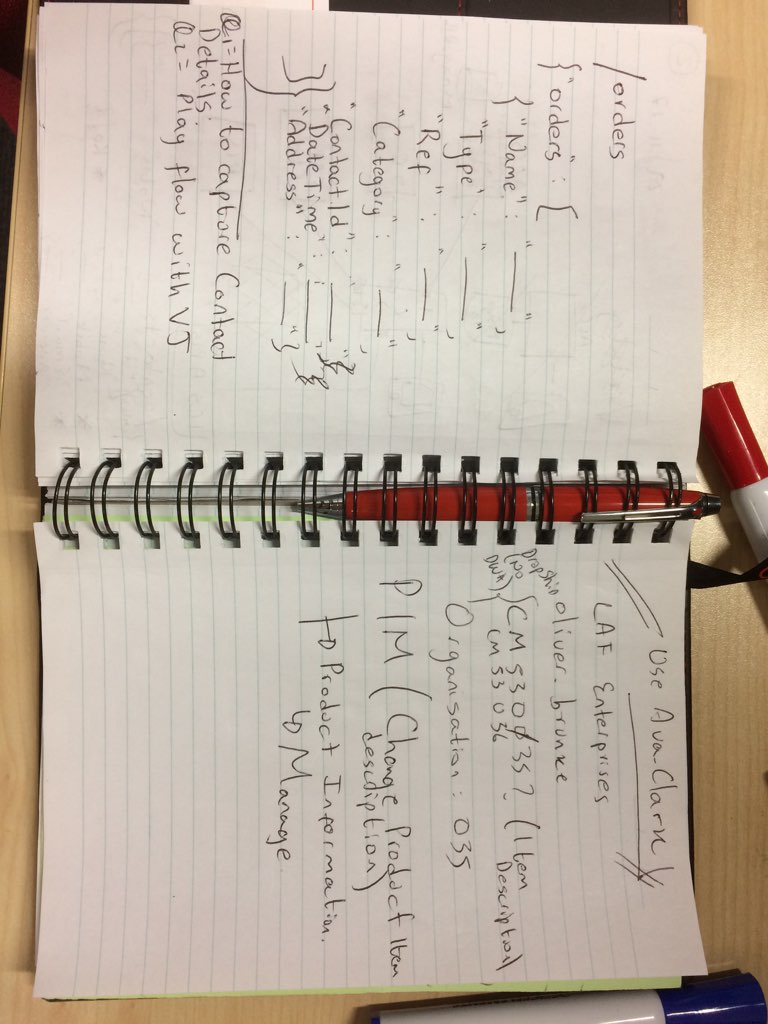 /orders
{"orders": [
{"Name": "____",
"Type": "____",
"Ref": "____",
"Category": "____",
"ContactId": "____"
"DateTime": "____"
"Address": "____"}
}
]
Q1=How to capture Contact
Details:
Q2= Play flow with VJ
Use Ava-Clark
LAF Enterprises
oliver.brunke
Dropship
(No
DWA)
{CM 530035? (Item
Description)
CM 53 036
Organisation: 035
PIM (Change Product Item
description)
↳ Product Information.
↳ Manage